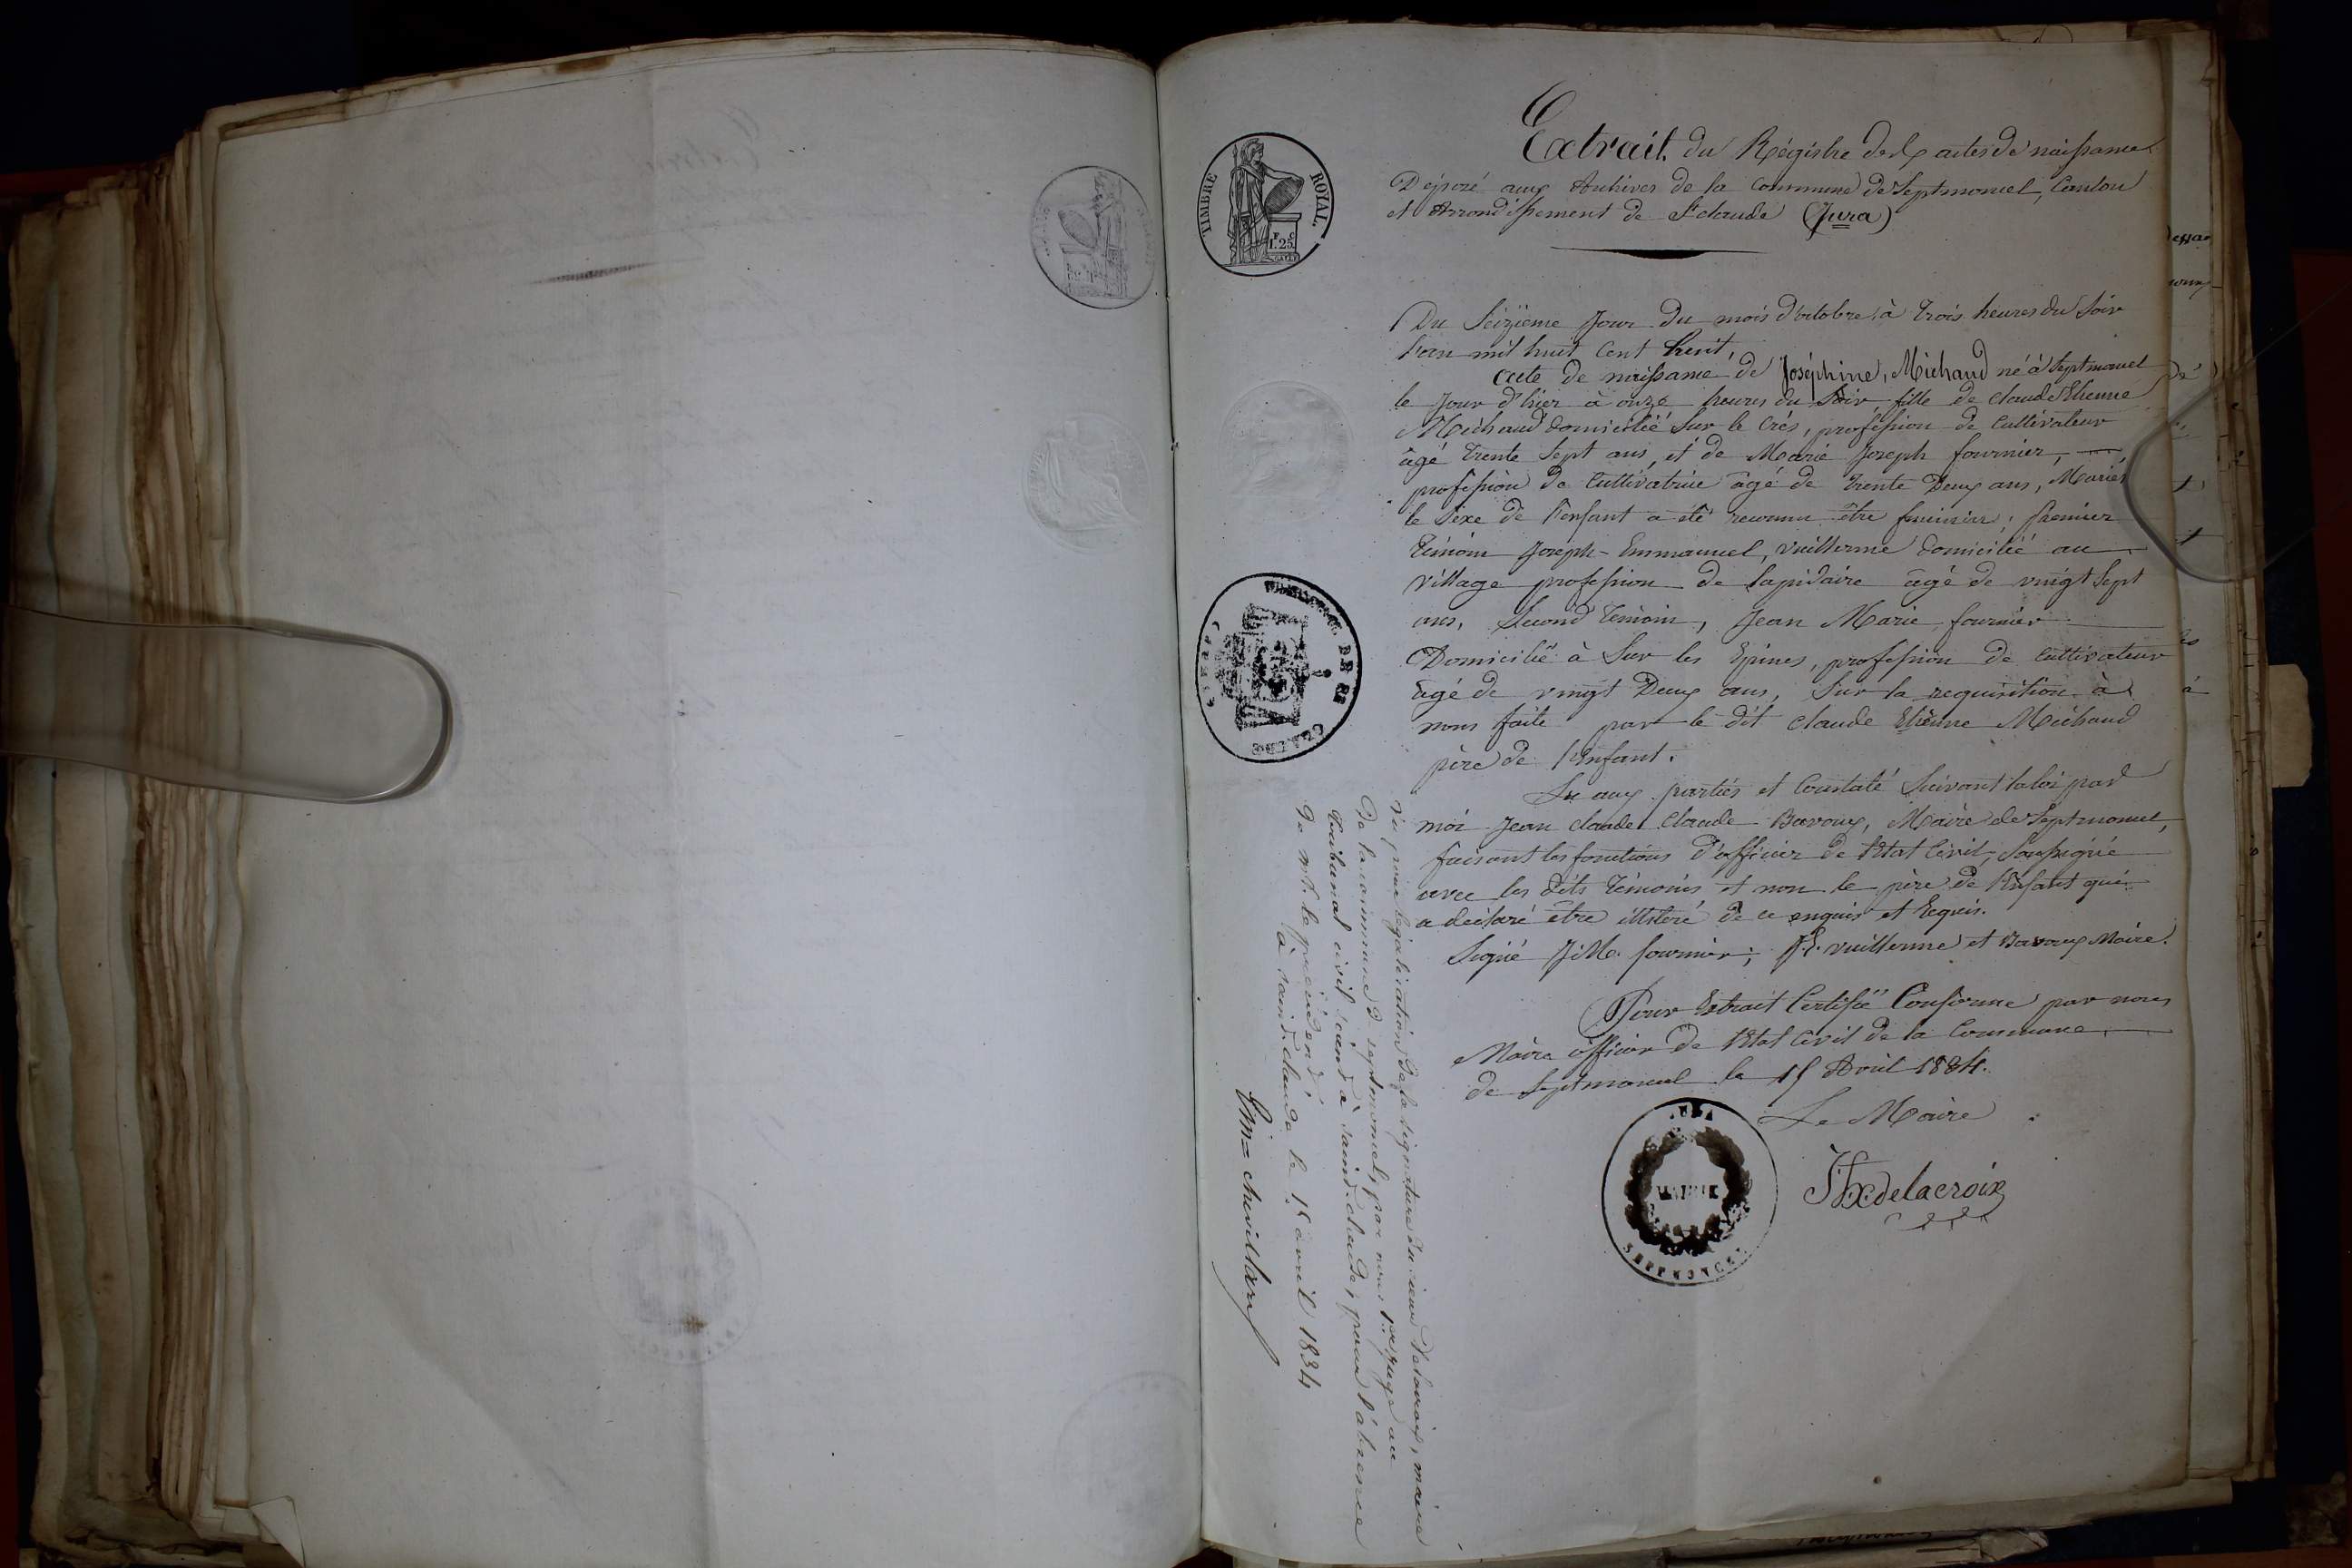 Extrait du Régistre des actes de naissance
Déposé aux Archives de la Commune de Septmoncel, Canton
et Arrondissement de St Claude (Jura)
TIMBRE ROYAL
F. C.
1.25
Du Seizieme Jour du mois d'octobre à trois heures du Soir
l'an mil huit Cent huit,
acte de naissance de Joséphine, Michaud né à Septmoncel
le Jour d'hier à onze heures du Soir, fille de claude Etienne
Michaud domicilié Sur le Crés, profession de Cultivateur
âgé trente Sept ans, et de Marie Joseph fournier,
profession de Cultivatrice âgé de trente Deux ans, Mariés
le Séxe de l'enfant a été reconnu être feminin; premier
témoin Joseph-Emmanuel, vuillerme domicilié au
village profession de lapidaire âgé de vingt Sept
ans, Second témoin, Jean Marie fournier
Domicilié à Sur les Epines, profession de Cultivateur
âgé de vingt Deux ans, Sur la requisition à
nous faite par le dit claude Etienne Michaud
père de l'Enfant.
Lu aux parties et Constaté Suivant la loi par
moi Jean claude Claude Bavoux, Maire de Septmoncel,
faisant les fonctions d'officier de l'Etat Civil, Soussigné
avec les dits témoins et non le père de l'Enfant qui
a déclaré être illitéré de ce enquis et Requis.
Signé J. M. fournier; J. E. vuillerme et Bavoux Maire.
Pour Extrait Certifié Conforme par nous
Maire officier de l'Etat Civil de la Commune
de Septmoncel le 15 Avril 1834.
Le Maire
Delacroix
MAIRIE
SEPTMONCEL
vu pour légalisation de la signature du sieur Delacroix, maire
de la commune de septmoncel, par nous 1er juge au
tribunal civil séant à saint-claude, pour l'absence
de mr. le président
à saint-claude le 15 avril 1834
chevillard